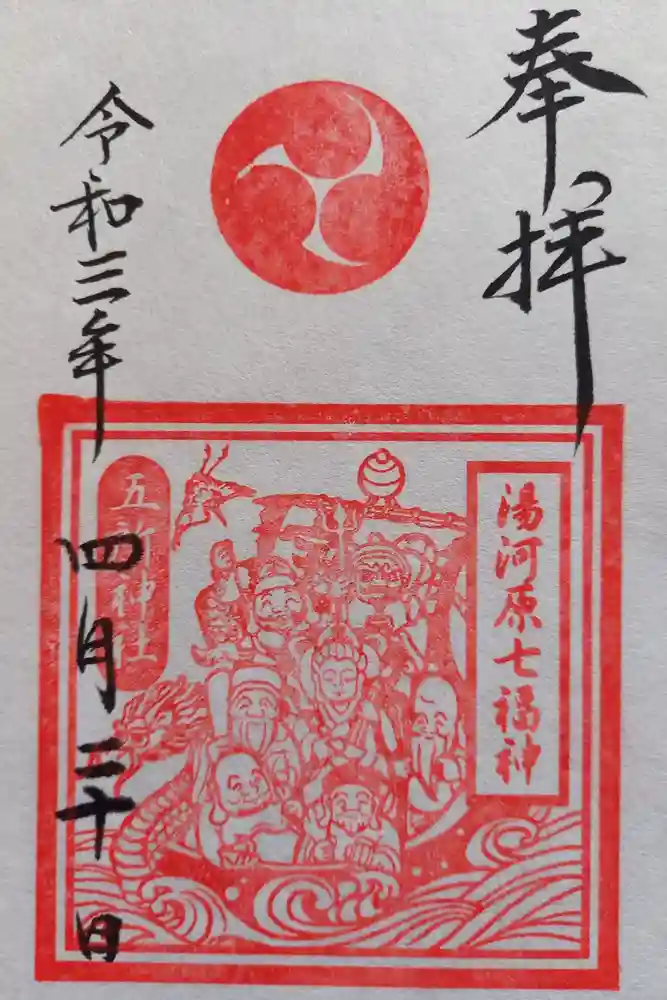 奉拝
湯河原七福神
五所神社
令和三年
四月三十日